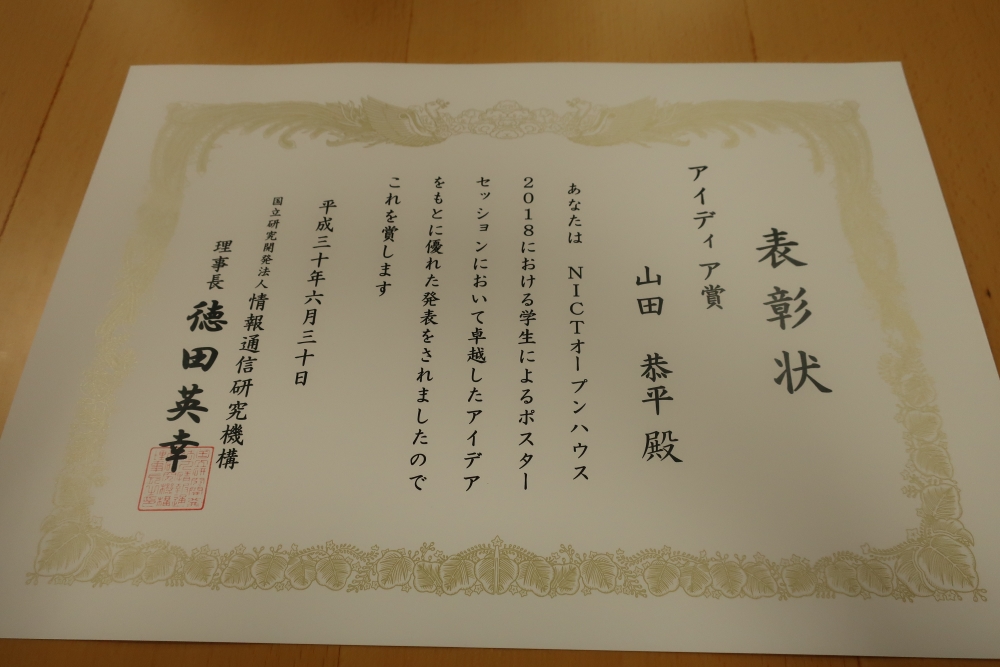 表彰状
アイディア賞
山田 恭平 殿
あなたは NICTオープンハウス
2018における学生によるポスター
セッションにおいて卓越したアイデア
をもとに優れた発表をされましたので
これを賞します
平成三十年六月三十日
国立研究開発法人情報通信研究機構
理事長 徳田英幸